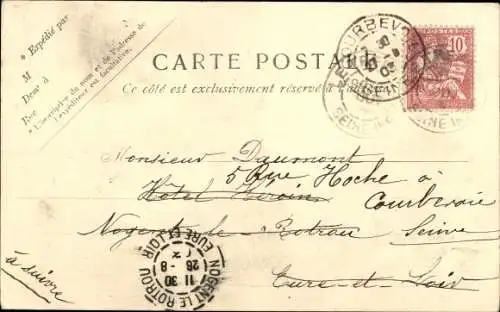 * Expédié par
M
Demt à
Rue
* L'inscription du nom et de l'adresse de
l'expéditeur est facultative.
CARTE POSTALE
Ce côté est exclusivement réservé à l'adresse
COURBEVOIE
SEINE
10
Monsieur Daumont
5 Rue Hoche à
Hotel
Courbevoie
Nogent-le-Rotrou Seine
Eure-et-Loir
à suivre
NOGENT LE ROTROU
EURE ET LOIR
11 30
26 - 8